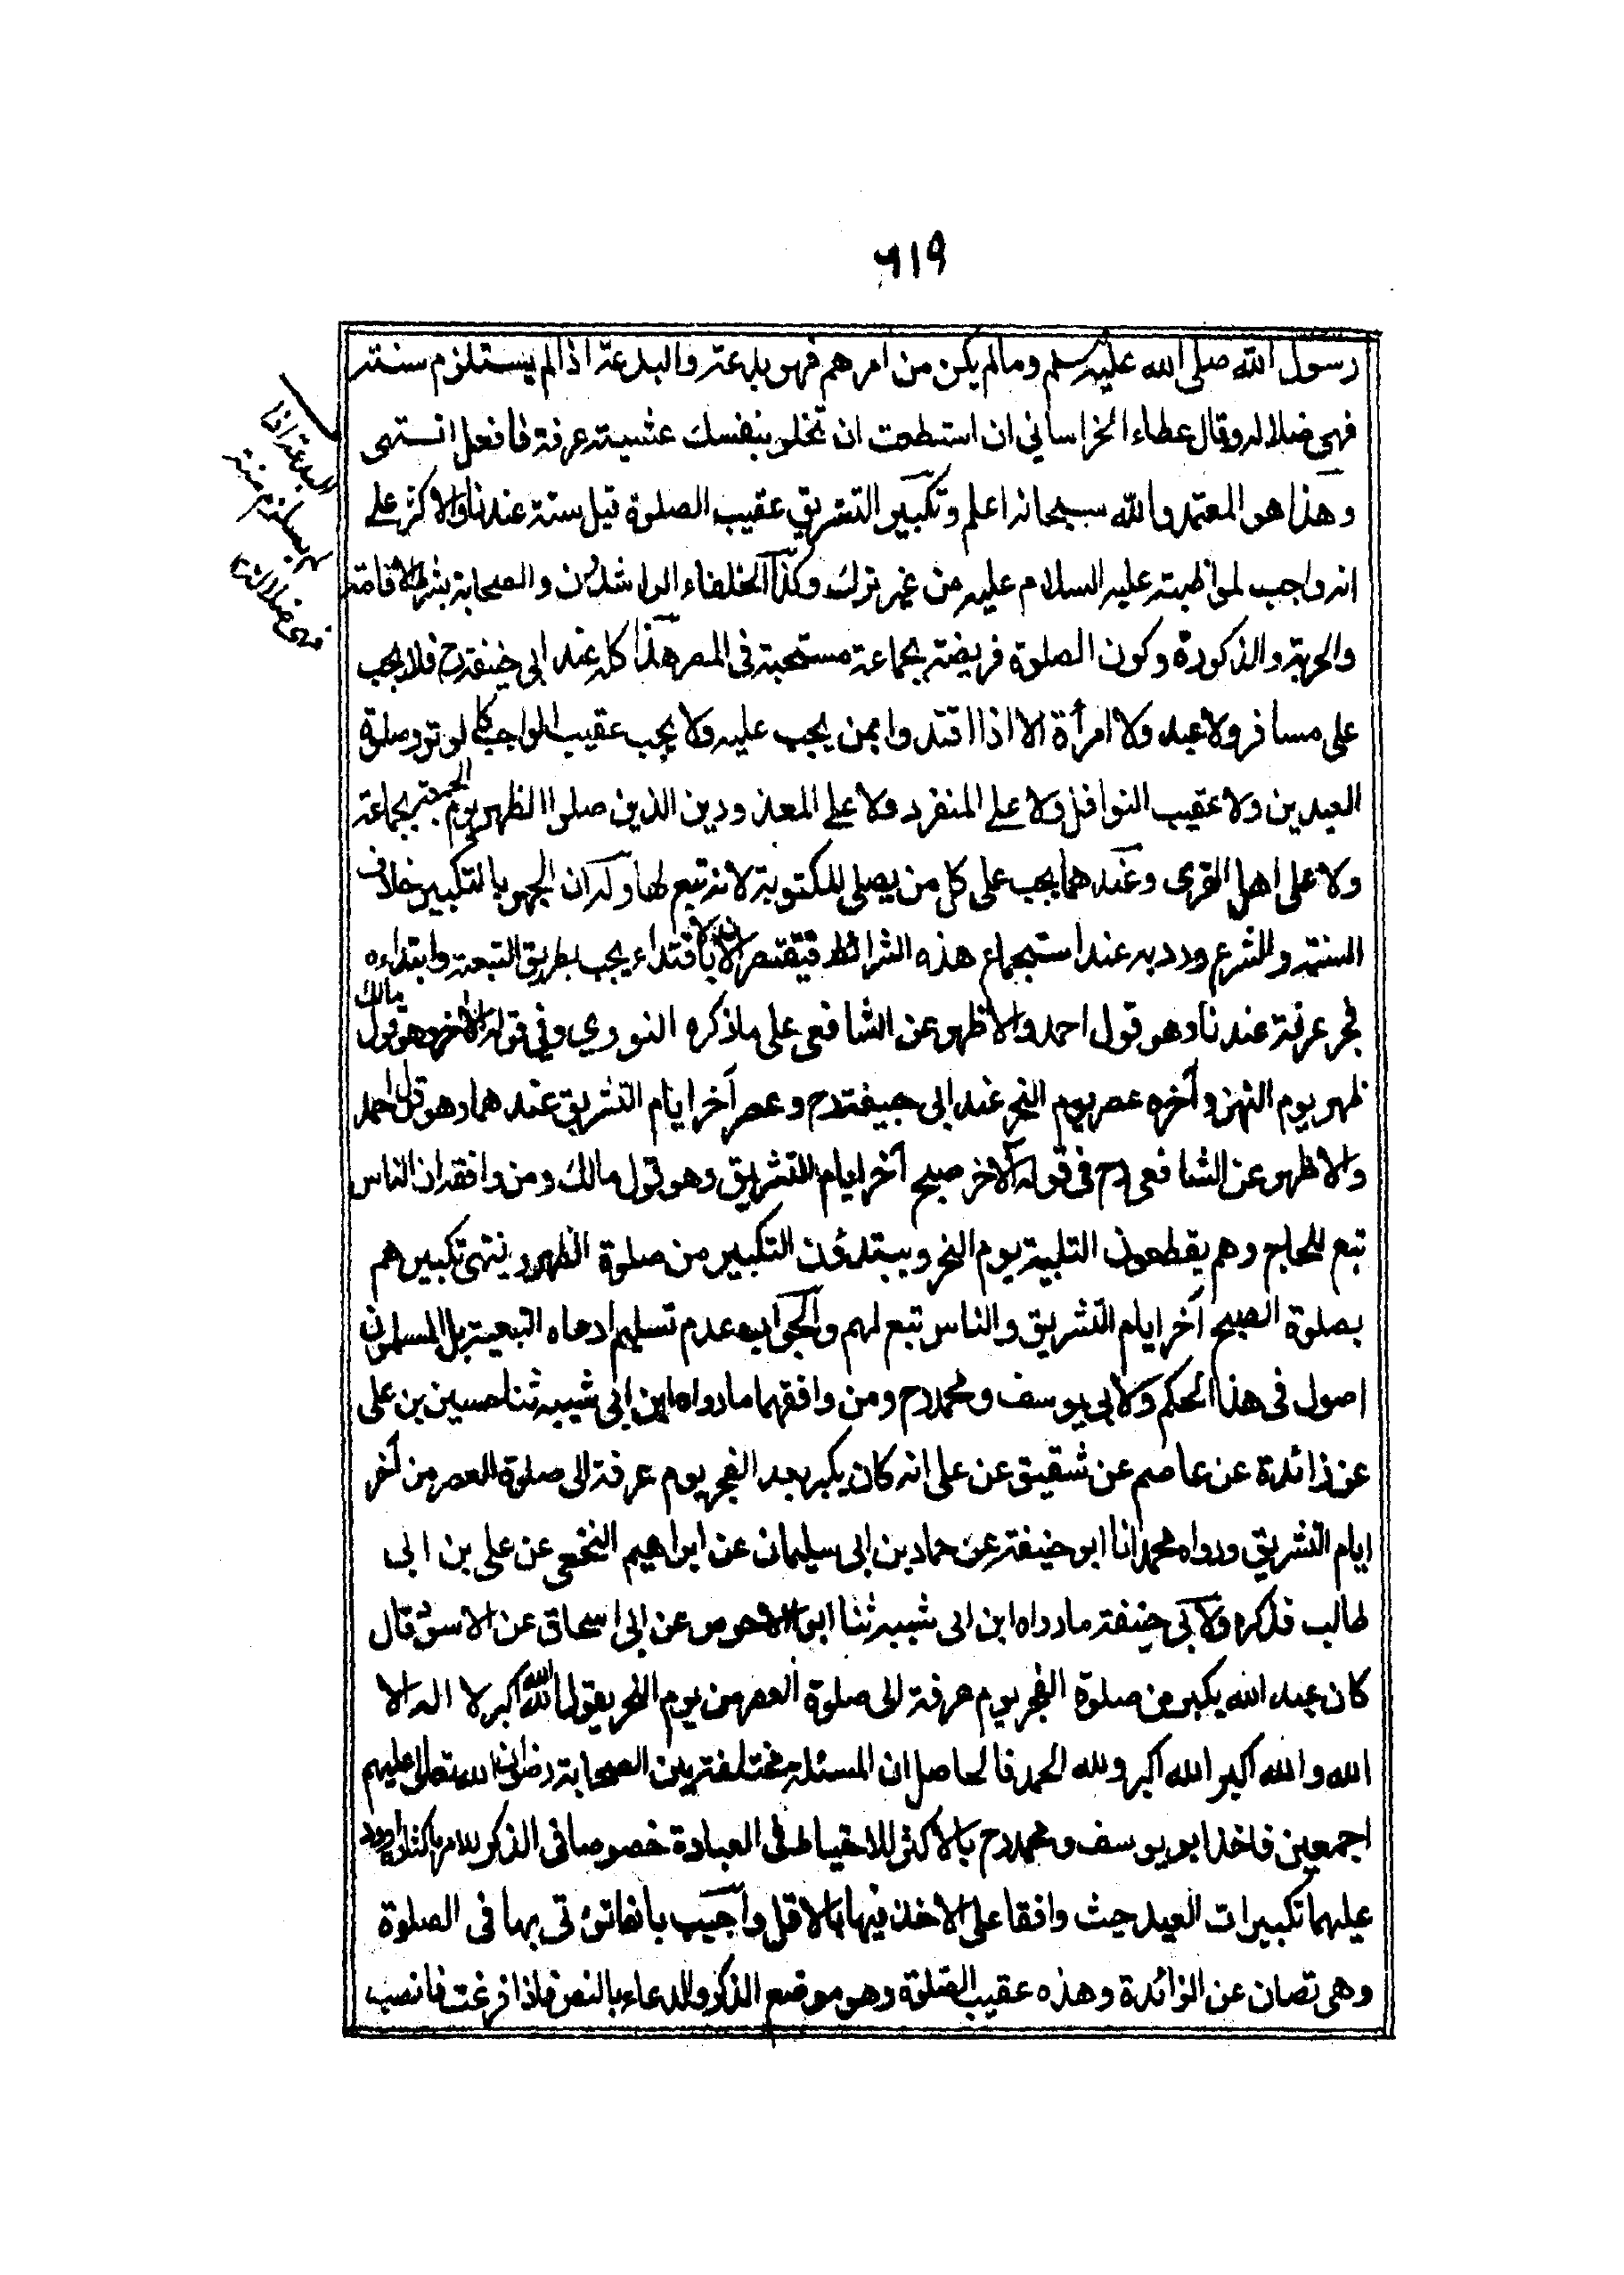 ٦١٩
رسول الله صلى الله عليه وسلم ومالم يكن من امرهم فهو بدعة والبدعة اذا لم يستلزم سنة
فهى ضلالة وقال عطاء الخراساني ان استطعت ان تخلو بنفسك عشية عرفة فافعل انتهى
وهذا هو المعتمد والله سبحانه اعلم وتكبير التشريق عقيب الصلوة قيل سنة عندنا والاكثر على
انه واجب لمواظبته عليه السلام عليه من غير ترك وكذا الخلفاء الراشدون والصحابة بشرط الاقامة
والحرية والذكورة وكون الصلوة فريضة بجماعة مستحبة فى المصر هذا كله عند ابى حنيفة رح فلا يجب
على مسافر ولا عبد ولا امرأة الا اذا اقتدوا بمن يجب عليه ولا يجب عقيب الواجب كالوتر وصلوة
العيدين ولا عقيب النوافل ولا على المنفرد ولا على المعذورين الذين صلوا الظهر يوم الجمعة بجماعة
ولا على اهل القرى وعندهما يجب على كل من يصلى المكتوبة لانه تبع لها وله ان الجهر بالتكبير خلاف
السنة والشرع ورد به عند استجماع هذه الشرائط فيقتصر الا ان بالاقتداء يجب بطريق التبعية وابتداءه
فجر عرفة عندنا وهو قول احمد والاظهر عن الشافعى على ماذكره النووي وفي قوله الآخر وهو قول مالك
ظهر يوم النحر وآخره عصر يوم النحر عند ابى حنيفة رح وعصر آخر ايام التشريق عندهما وهو قول احمد
والاظهر عن الشافعى رح فى قوله الآخر صبح آخر ايام التشريق وهو قول مالك ومن وافقه ان الناس
تبع للحاج وهم يقطعون التلبية يوم النحر ويبتدؤن التكبير من صلوة الظهر وينتهى تكبيرهم
بصلوة الصبح آخر ايام التشريق والناس تبع لهم والجواب عدم تسليم ادعاه التبعية بل المسلمون
اصول فى هذا الحكم ولابى يوسف ومحمد رح ومن وافقهما مارواه ابن ابى شيبه ثنا حسين بن على
عن زائدة عن عاصم عن شقيق عن على انه كان يكبر بعد الفجر يوم عرفة الى صلوة العصر من آخر
ايام التشريق ورواه محمد انا ابو حنيفة عن حماد بن ابى سليمان عن ابراهيم النخعى عن على بن ابى
طالب فذكره ولابى حنيفة مارواه ابن ابى شيبه ثنا ابو الاحوص عن ابى اسحاق عن الاسود قال
كان عبد الله يكبر من صلوة الفجر يوم عرفة الى صلوة العصر من يوم النحر يقول الله اكبر لا اله الا
الله والله اكبر الله اكبر ولله الحمد فالحاصل ان المسئلة مختلفة بين الصحابة رضوان الله تعالى عليهم
اجمعين فاخذ ابو يوسف ومحمد رح بالاكثر للاحتياط فى العبادة خصوصا فى الذكر للامر باكثاره واورد
عليهما تكبيرات العيد حيث وافقا على الاخذ فيها بالاقل واجيب بانها تؤتى بها فى الصلوة
وهى تصان عن الزائدة وهذه عقيب الصلوة وهو موضع الذكر والدعاء بالنص فاذا فرغت فانصب
البدعة اذا
لم يستلزم سنة
فهى ضلالة